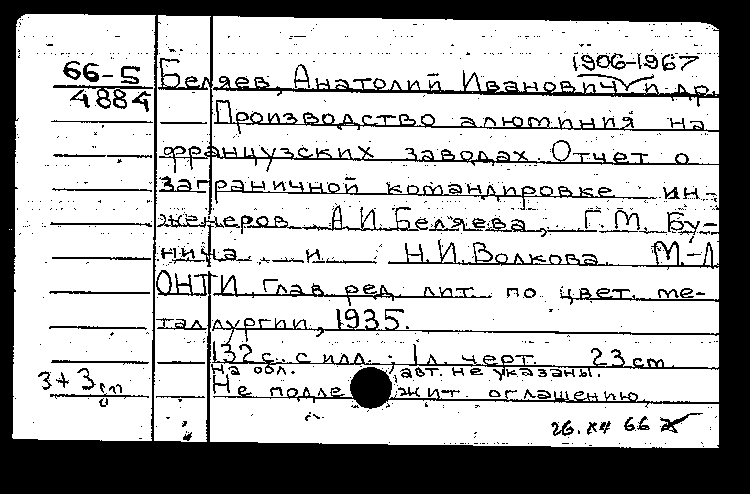 1906-1967
66-5 Беляев, Анатолий Иванович и др.
4884
Производство алюминия на
французских заводах. Отчет о
заграничной командировке ин-
женеров А.И. Беляева, Г.М. Бу-
нича и Н.И. Волкова. М.-Л
ОНТИ, Глав. ред. лит. по цвет. ме-
таллургии, 1935.
132 с. с илл.; 1 л. черт. 23 cm
На обл. авт. не указаны.
Не подлежит оглашению.
3+3
66